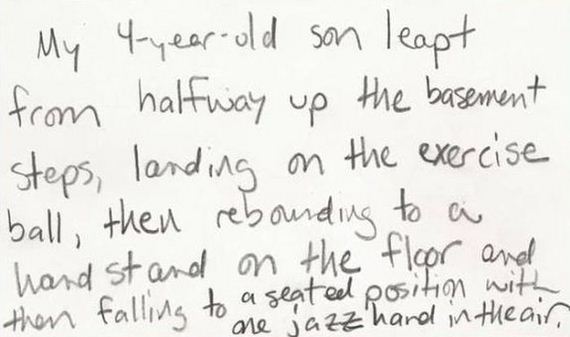 My 4-year-old son leapt
from halfway up the basement
steps, landing on the exercise
ball, then rebounding to a
hand stand on the floor and
then falling to a seated position with
one jazz hand in the air.